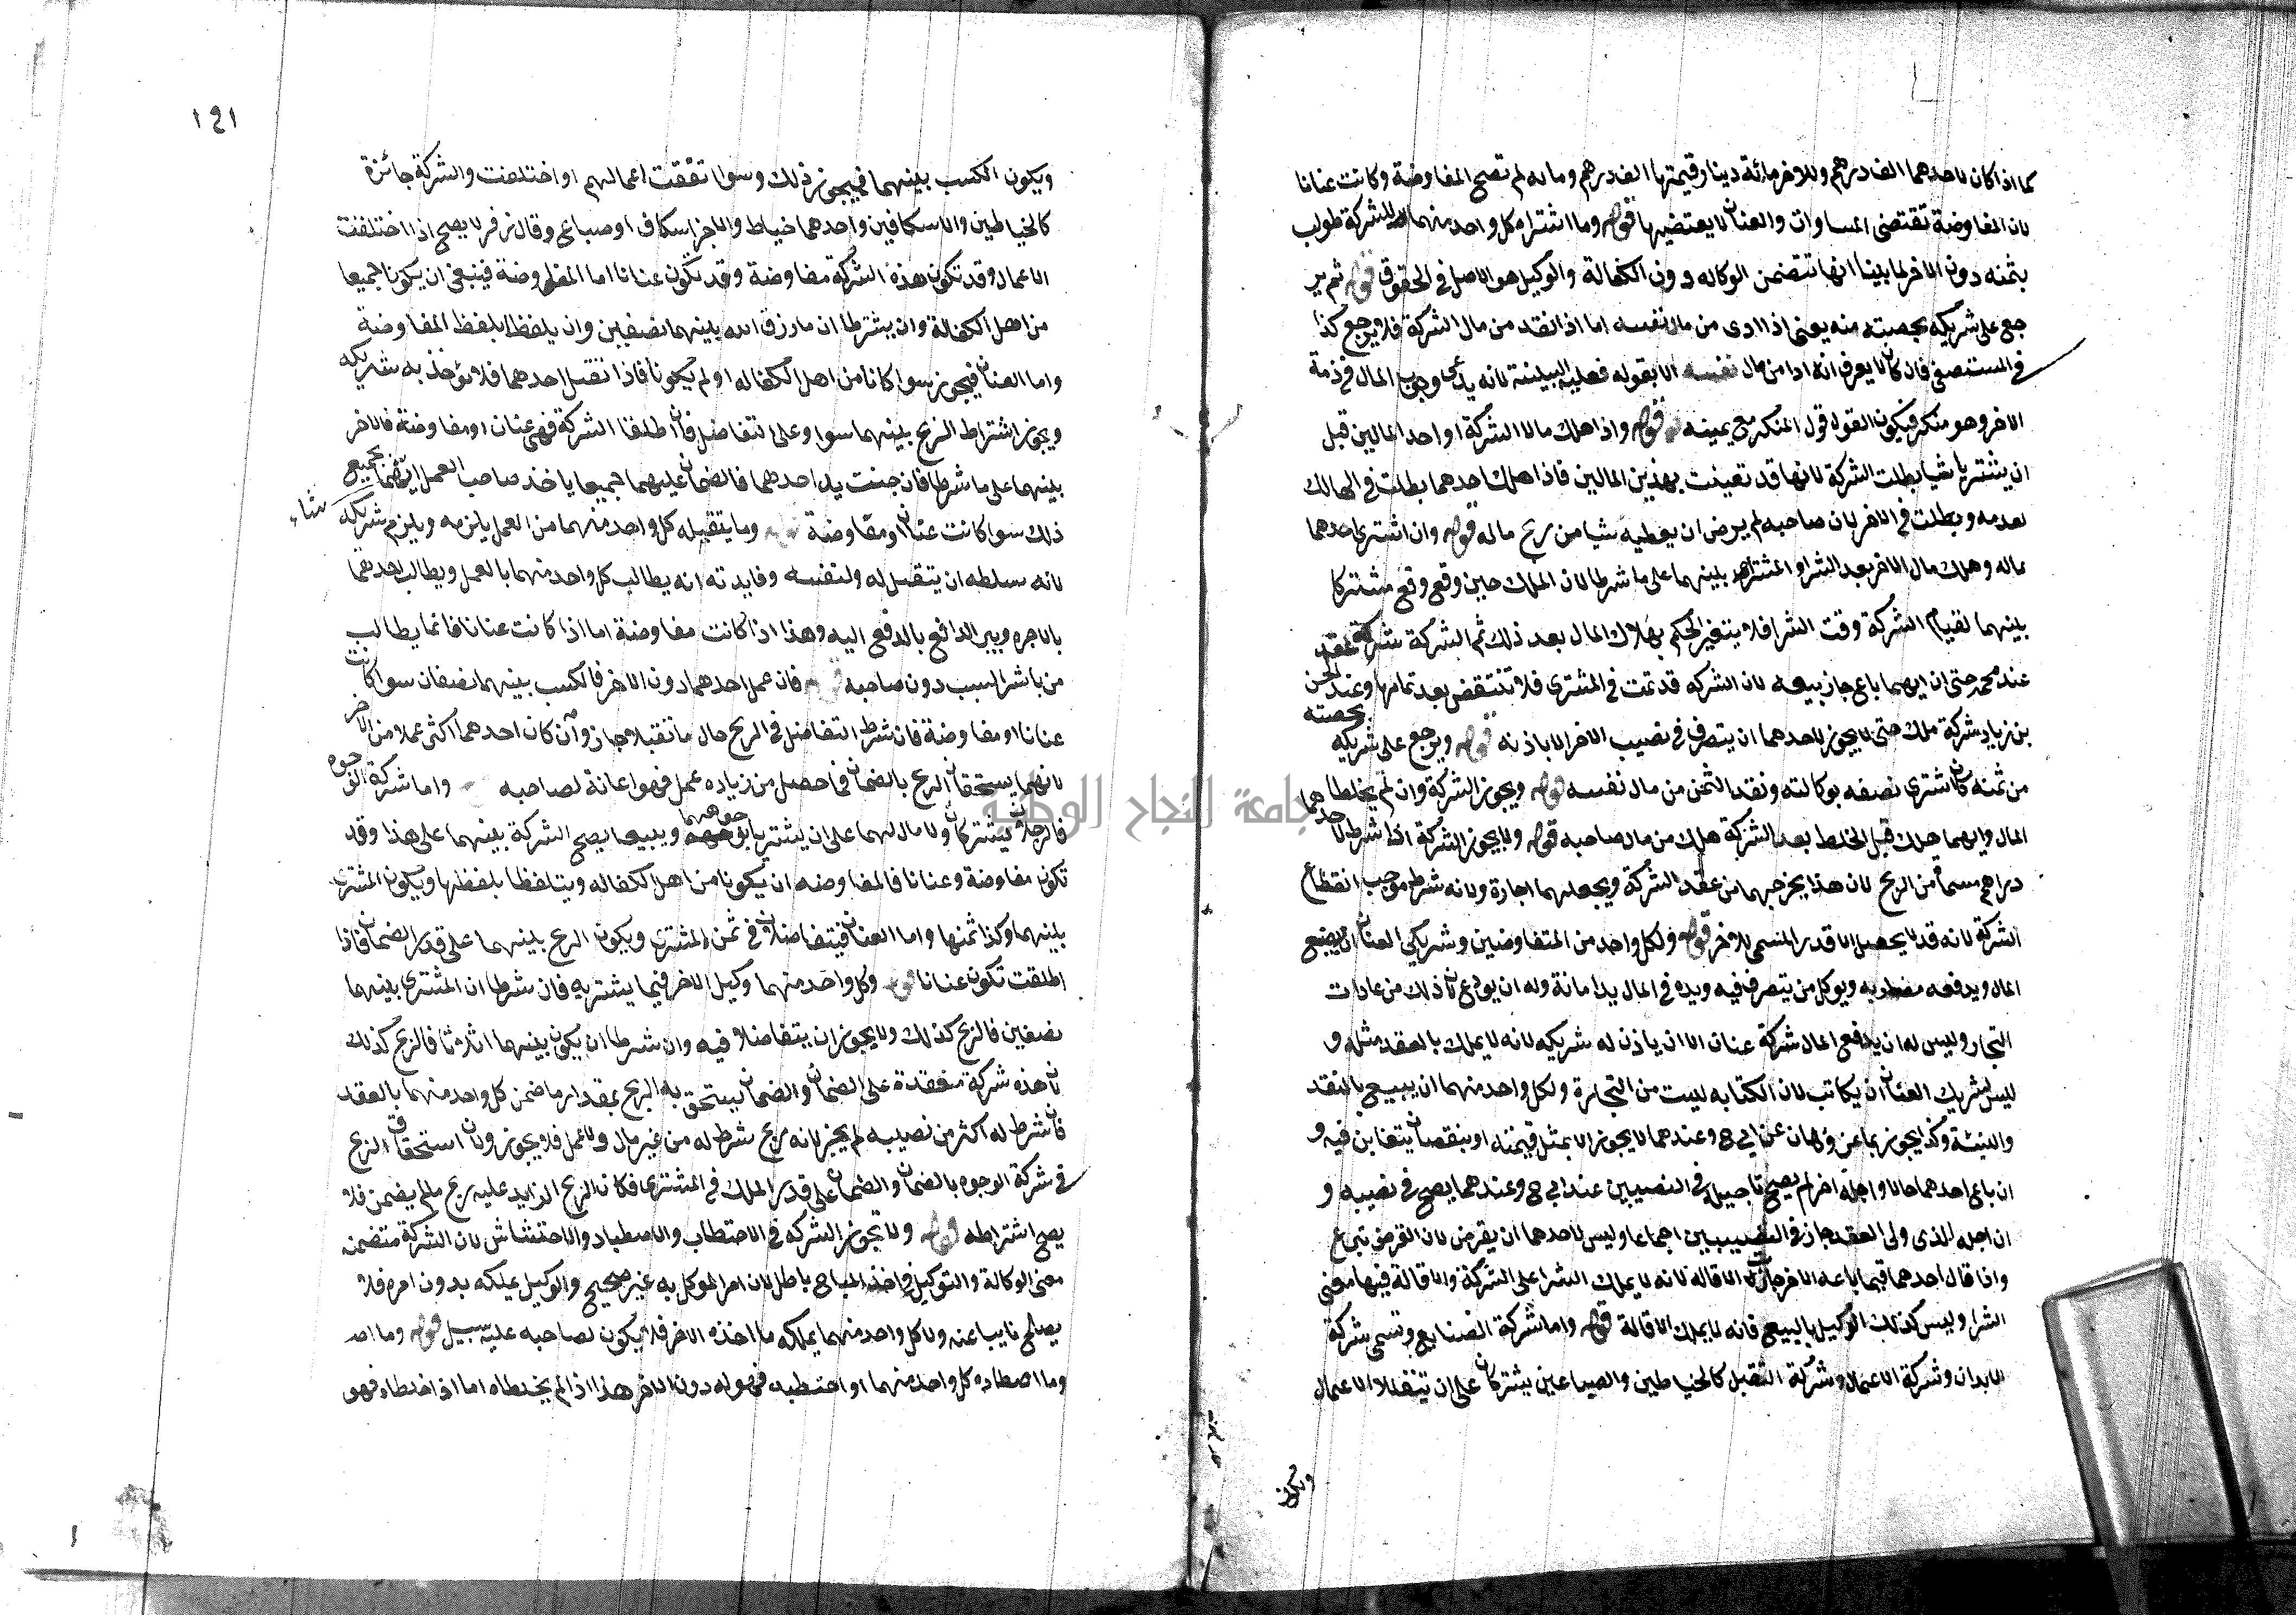 كما اذا كان لاحدهما الف درهم وللاخر مائة دينار قيمتها الف درهم وماله لم تصح المفاوضة وكانت عنانا
لان المفاوضة تقتضى المساوات والعنان لا يقتضيها قوله وما اشتراه كل واحد منهما للشركة طولب
بثمنه دون الاخر لما بينا انها تتضمن الوكاله دون الكفالة والوكيل هو الاصل في الحقوق قوله ثم ير
جع على شريكه بحصته منه يعنى اذا ادى من مال نفسه اما اذا نقد من مال الشركة فلا يرجع كذا
في المستصفى فان كان لا يعرف انه ادا من مال نفسه الا بقوله فعليه البينة لانه يدعى وجوب المال في ذمة
الاخر وهو منكر فيكون القول قول المنكر مع يمينه قوله واذا هلك مال الشركة او احد المالين قبل
ان يشتريا شيا بطلت الشركة لانها قد تعينت بهذين المالين فاذا هلك احدهما بطلت في الهالك
لعدمه وبطلت في الاخر لان صاحبه لم يرض ان يعطيه شيا من ربح ماله قوله وان اشترى احدهما
بماله وهلك مال الاخر بعد الشرا والمشترا بينهما على ما شرطا لان الملك حين وقع وقع مشتركا
بينهما لقيام الشركة وقت الشرا فلا يتغير الحكم بهلاك المال بعد ذلك ثم الشركة شركة عقد
عند محمد حتى ان ايهما باع جاز بيعه لان الشركه قد تمت في المشترى فلا تنتقض بعد تمامها وعند الحسن
بن زياد شركة ملك حتى لا يجوز لاحدهما ان يتصرف في نصيب الاخر الا باذنه قوله ويرجع على شريكه بحصته
من ثمنه لانه اشترى نصفه بوكالته ونقد الثمن من مال نفسه قوله ويجوز الشركة وان لم يخلطا
المال وايهما هلك قبل الخلط بعد الشركة هلك من مال صاحبه قوله ولا يجوز الشركة اذا شرط لاحدهما
دراهم مسماة من الربح لان هذا يخرجهما من عقد الشركة ويجعلهما اجارة ولانه شرط موجب انقطاع
الشركة لانه قد لا يحصل الا قدر المسمى للاخر قوله ولكل واحد من المتفاوضين وشريكي العنان ان يبضع
المال ويدفعه مضاربه ويوكل من يتصرف فيه ويده في المال يد امانة وله ان يودع لان ذلك من عادات
التجار وليس له ان يدفع المال شركة عنان الا ان ياذن له شريكه لانه لا يملك بالعقد مثله و
ليس لشريك العنان ان يكاتب لان الكتابه ليست من التجارة ولكل واحد منهما ان يبيع بالنقد
والنسئة وكذا يجوز بما عز وهان عند ابي ح وعندهما لا يجوز الا بمثل قيمته او بنقصان يتغابن فيه و
ان باع احدهما حالا واجله اخر لم يصح تاجيله في النصيبين عند ابي ح وعندهما يصح في نصيبه و
ان اجله الذى ولى العقد جاز في النصيبين اجماعا وليس لاحدهما ان يقرض لان القرض تبرع
واذا قال احدهما فيما باعه الاخر جازت الاقاله لانه لا يملك الشرا على الشركة والاقالة فيها معنى
الشرا وليس كذلك الوكيل بالبيع فانه لا يملك الاقالة قوله واما شركة الصنايع وتسمى شركة
الابدان وشركة الاعمال وشركة التقبل كالخياطين والصباغين يشتركان على ان يتقبلا الاعمال
ويكون
١٩١
ويكون الكسب بينهما فيجوز ذلك وسوا تفقت اعمالهم او اختلفت والشركة جائزة
كالخياطين والاسكافين واحدهما خياط والاخر اسكاف او صباغ وقال زفر لا يصح اذا اختلفت
الاعمال وقد تكون هذه الشركة مفاوضة وقد تكون عنانا اما المفاوضة فينبغى ان يكونا جميعا
من اهل الكفالة وان يشترطا ان مارزق الله بينهما نصفين وان يلفظا بلفظ المفاوضة
واما العنان فيجوز سوا كانا من اهل الكفاله او لم يكونا فاذا تقبل احدهما فلا يؤخذ به شريكه
ويجوز اشتراط الربح بينهما سوا وعلى التفاضل فان اطلقا الشركة فهى عنان او مفاوضة فالاخر
بينهما على ما شرطا فان جنت يد احدهما فالضمان عليهما جميعا ياخذ صاحب العمل ايهما بجميع
شاء
ذلك سوا كانت عنان او مفاوضة قوله وما يتقبله كل واحد منهما من العمل يلزمه ويلزم شريكه
لانه سلطه ان يتقبل له ولنفسه وفايدته انه يطالب كل واحد منهما بالعمل ويطالب احدهما
بالاجره ويبر الدافع بالدفع اليه وهذا اذا كانت مفاوضة اما اذا كانت عنانا فانما يطالب
من باشر السبب دون صاحبه قوله فان عمل احدهما دون الاخر فالكسب بينهما نصفان سوا كانت
عنانا او مفاوضة فان شرط التفاضل في الربح حال ما تقبلا جاز وان كان احدهما اكثر عملا من الاخر
لانهما يستحقان الربح بالضمان فما حصل من زياده عمل فهو اعانة لصاحبه واما شركة الوجوه
فالرجلان يشتركان ولا مال لهما على ان يشتريا بوجوههما ويبيعا يصح الشركة بينهما على هذا وقد
تكون مفاوضة وعنانا فالمفاوضه ان يكونا من اهل الكفاله ويتلفظا بلفظها ويكون المشترى
بينهما وكذا ثمنها واما العنان فيتفاضلان في ثمن المشترى ويكون الربح بينهما على قدر الضمان فاذا
اطلقت تكون عنانا قوله وكل واحد منهما وكيل الاخر فيما يشتريه فان شرطا ان المشترى بينهما
نصفين فالربح كذلك ولا يجوز ان يتفاضلا فيه وان شرطا ان يكون بينهما اثلاثا فالربح كذلك
لان هذه شركة منعقدة على الضمان والضمان يستحق به الربح بمقدار ما ضمن كل واحد منهما بالعقد
فان شرط له اكثر من نصيبه لم يجز لانه ربح شرط له من غير مال ولا عمل فلا يجوز ولان استحقاق الربح
في شركة الوجوه بالضمان والضمان على قدر الملك في المشترى فكان الربح الزايد عليه ربح مالم يضمن فلا
يصح اشتراطه قوله ولا تجوز الشركه في الاحتطاب والاصطياد والاحتشاش لان الشركة متضمنه
معنى الوكالة والتوكيل في اخذ المباح باطل لان امر الموكل به غير صحيح والوكيل يملكه بدون امره فلا
يصلح نايبا عنه ولا كل واحد منهما يملكه ما اخذه الاخر فلا يكون لصاحبه عليه سبيل قوله وما اصـ
وما اصطاده كل واحد منهما او احتطبه فهو له دون الاخر هذا اذا لم يخلطاه اما اذا خلطاه فهو
جامعة النجاح الوطنية